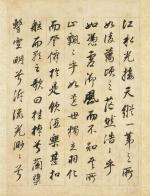 江水光接天縱一葦之所
如凌萬頃之茫然浩浩乎
如憑虛御風而不知其所
止飄飄乎如遺世獨立羽化
而登僊於是飲酒樂甚扣
舷而歌之歌曰桂棹兮蘭槳
擊空明兮泝流光渺渺兮